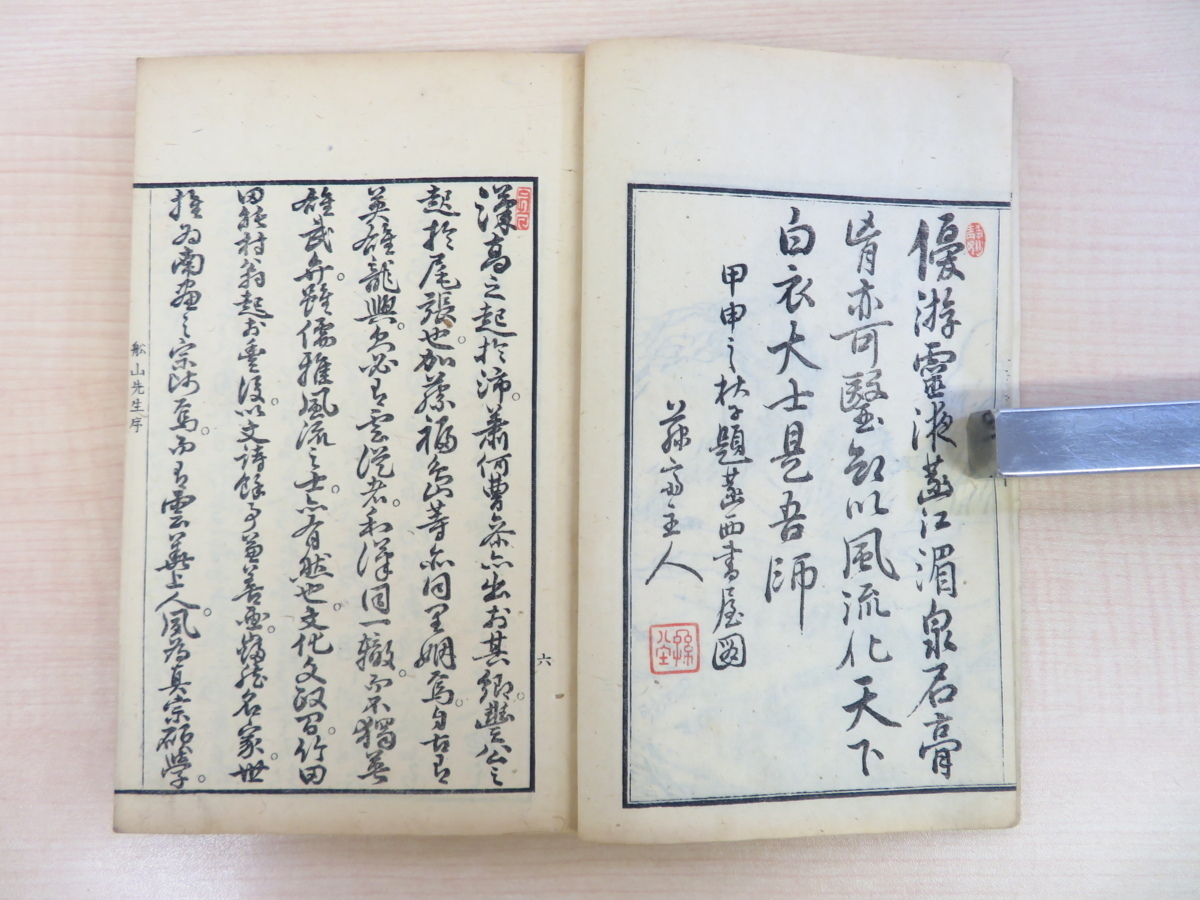 優游靈液益江湄泉石膏
肓亦可醫卻以風流化天下
白衣大士是吾師
甲申之秋子題 西書屋圖
主人
漢高之起於沛。蕭何曹參亦出於其鄉。豐公之
起於尾張也。加藤福島等亦同里婣焉。自古有
英雄龍興。必有雲從者。和漢同一轍。而不獨英
雄武弁。雖儒雅風流之士。亦有然也。文化文政間。竹田
田能村翁起於豐後。以文詩餘事兼善画。名家。世
推為南画之宗師焉。而有雲華上人。夙為真宗碩學。
六
舩山先生序